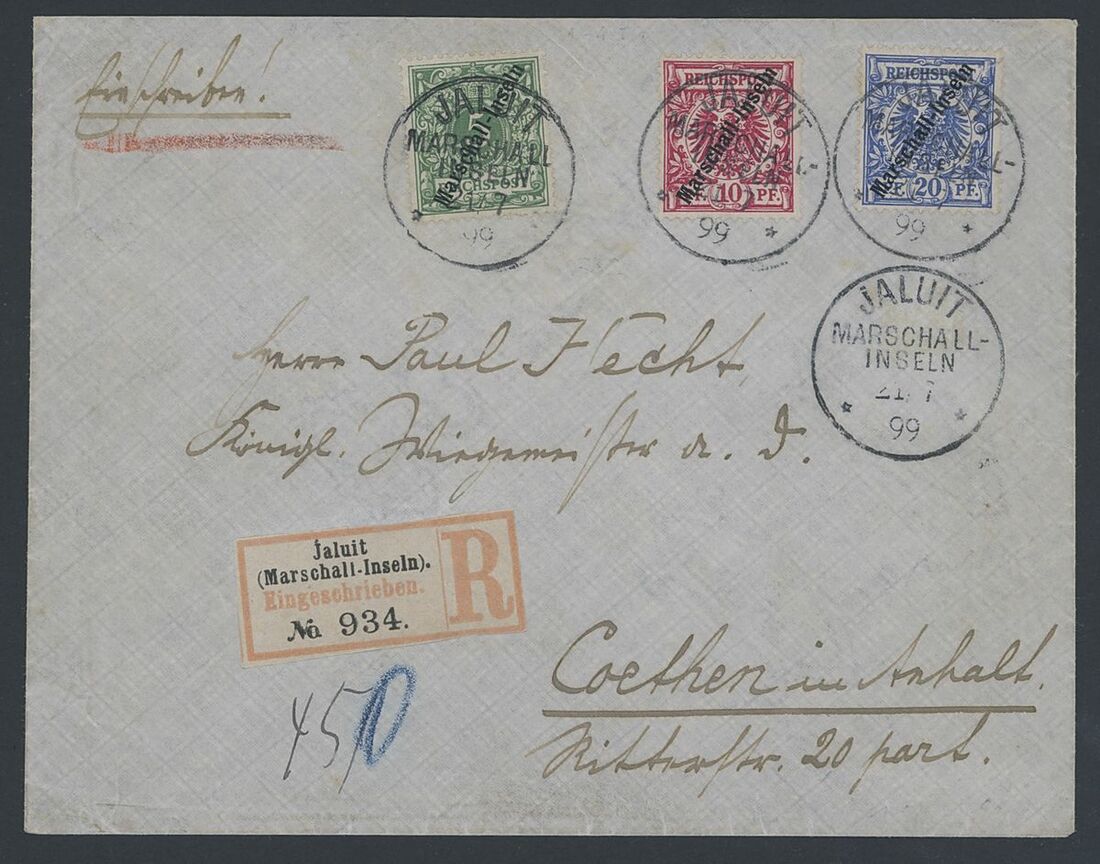 Einschreiben!
Marschall-Inseln
REICHSPOST
JALUIT
MARSCHALL
INSELN
7
99
REICHSPOST
Marschall-Inseln
10 PF.
JALUIT
99
REICHSPOST
Marschall-Inseln
20 PF.
JALUIT
99
JALUIT
MARSCHALL-
INSELN
21/7
99
Herrn Paul Hecht,
Königl. Wiegemeister a. D.
Jaluit
(Marschall-Inseln).
Eingeschrieben.
No 934.
R
Coethen in Anhalt.
Ritterstr. 20 part.
45